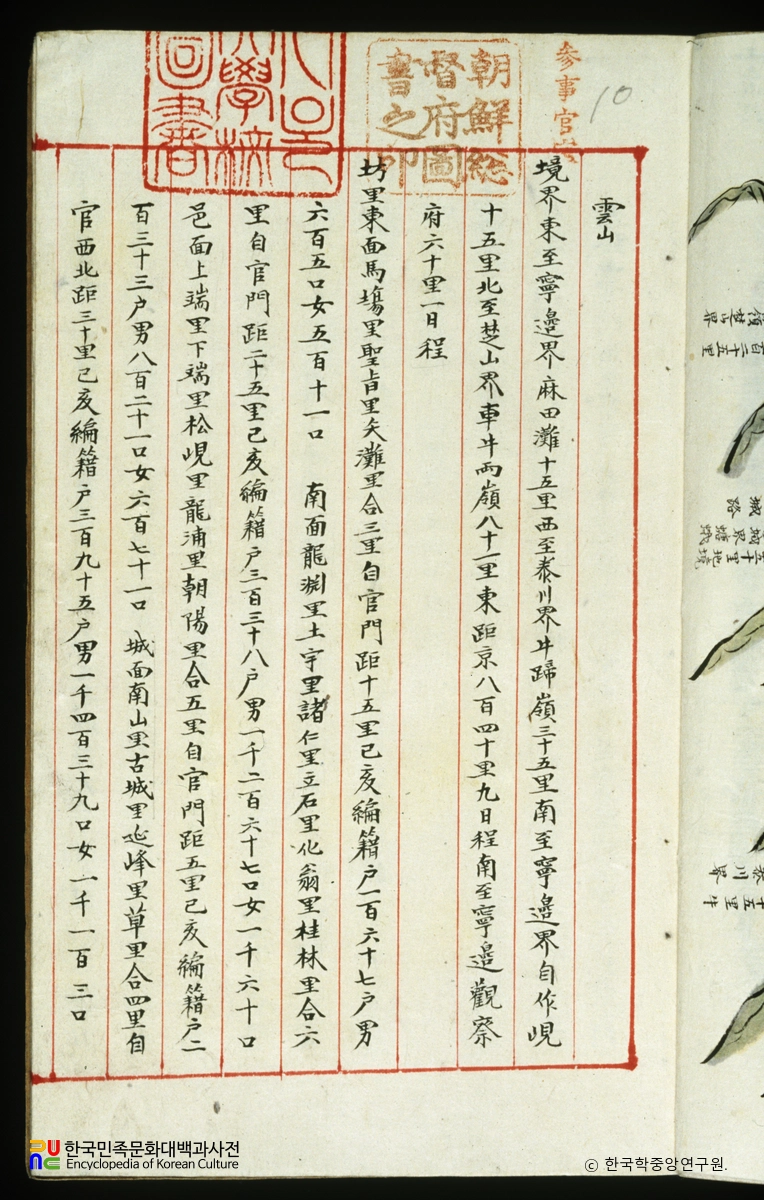 雲山
境界東至寧邊界麻田灘十五里西至泰川界牛蹄嶺三十五里南至寧邊界自作峴
十五里北至楚山界車牛兩嶺八十一里東距京八百四十里九日程南至寧邊觀察
府六十里一日程
坊里東面馬塲里聖旨里矢灘里合三里自官門距十五里己亥編籍户一百六十七户男
六百五口女五百十一口 南面龍淵里土宇里諸仁里立石里化翁里桂林里合六
里自官門距二十五里己亥編籍户三百三十八户男一千二百六十七口女一千六十口
邑面上端里下端里松峴里龍浦里朝陽里合五里自官門距五里己亥編籍户二
百三十三户男八百二十一口女六百七十一口 城面南山里古城里延峰里草里合四里自
官西北距三十里己亥編籍户三百九十五户男一千四百三十九口女一千一百三口
參事官
10
朝鮮總
督府圖
書之印
大學校
圖書
한국민족문화대백과사전
Encyclopedia of Korean Culture
© 한국학중앙연구원.